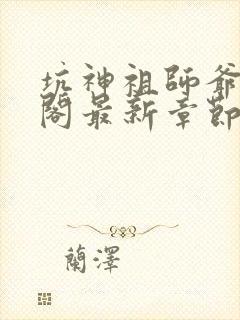 坑神祖師爺
閣最新章節
蘭澤